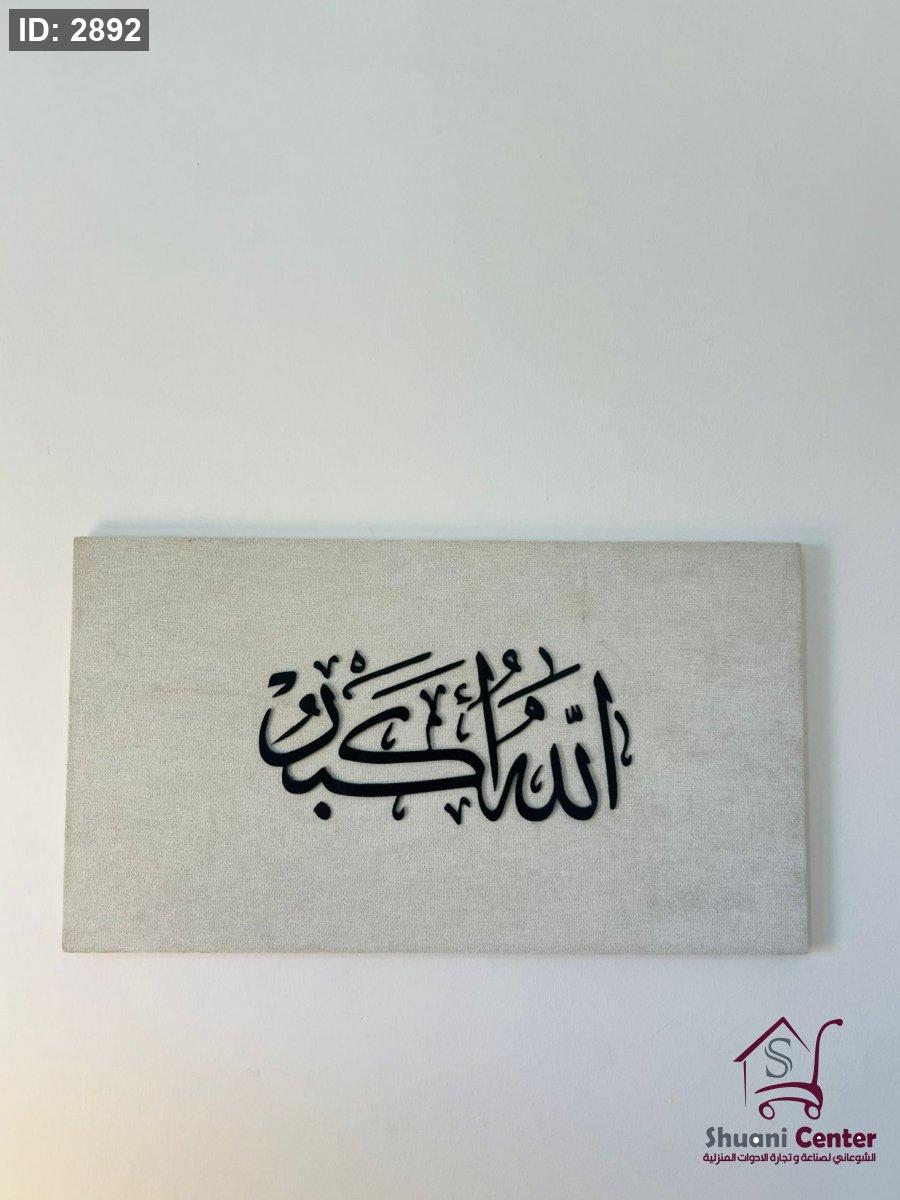 ID: 2892
اللَّهُ أَكْبَرُ
Shuani Center
الشوعاني لصناعة و تجارة الادوات المنزلية